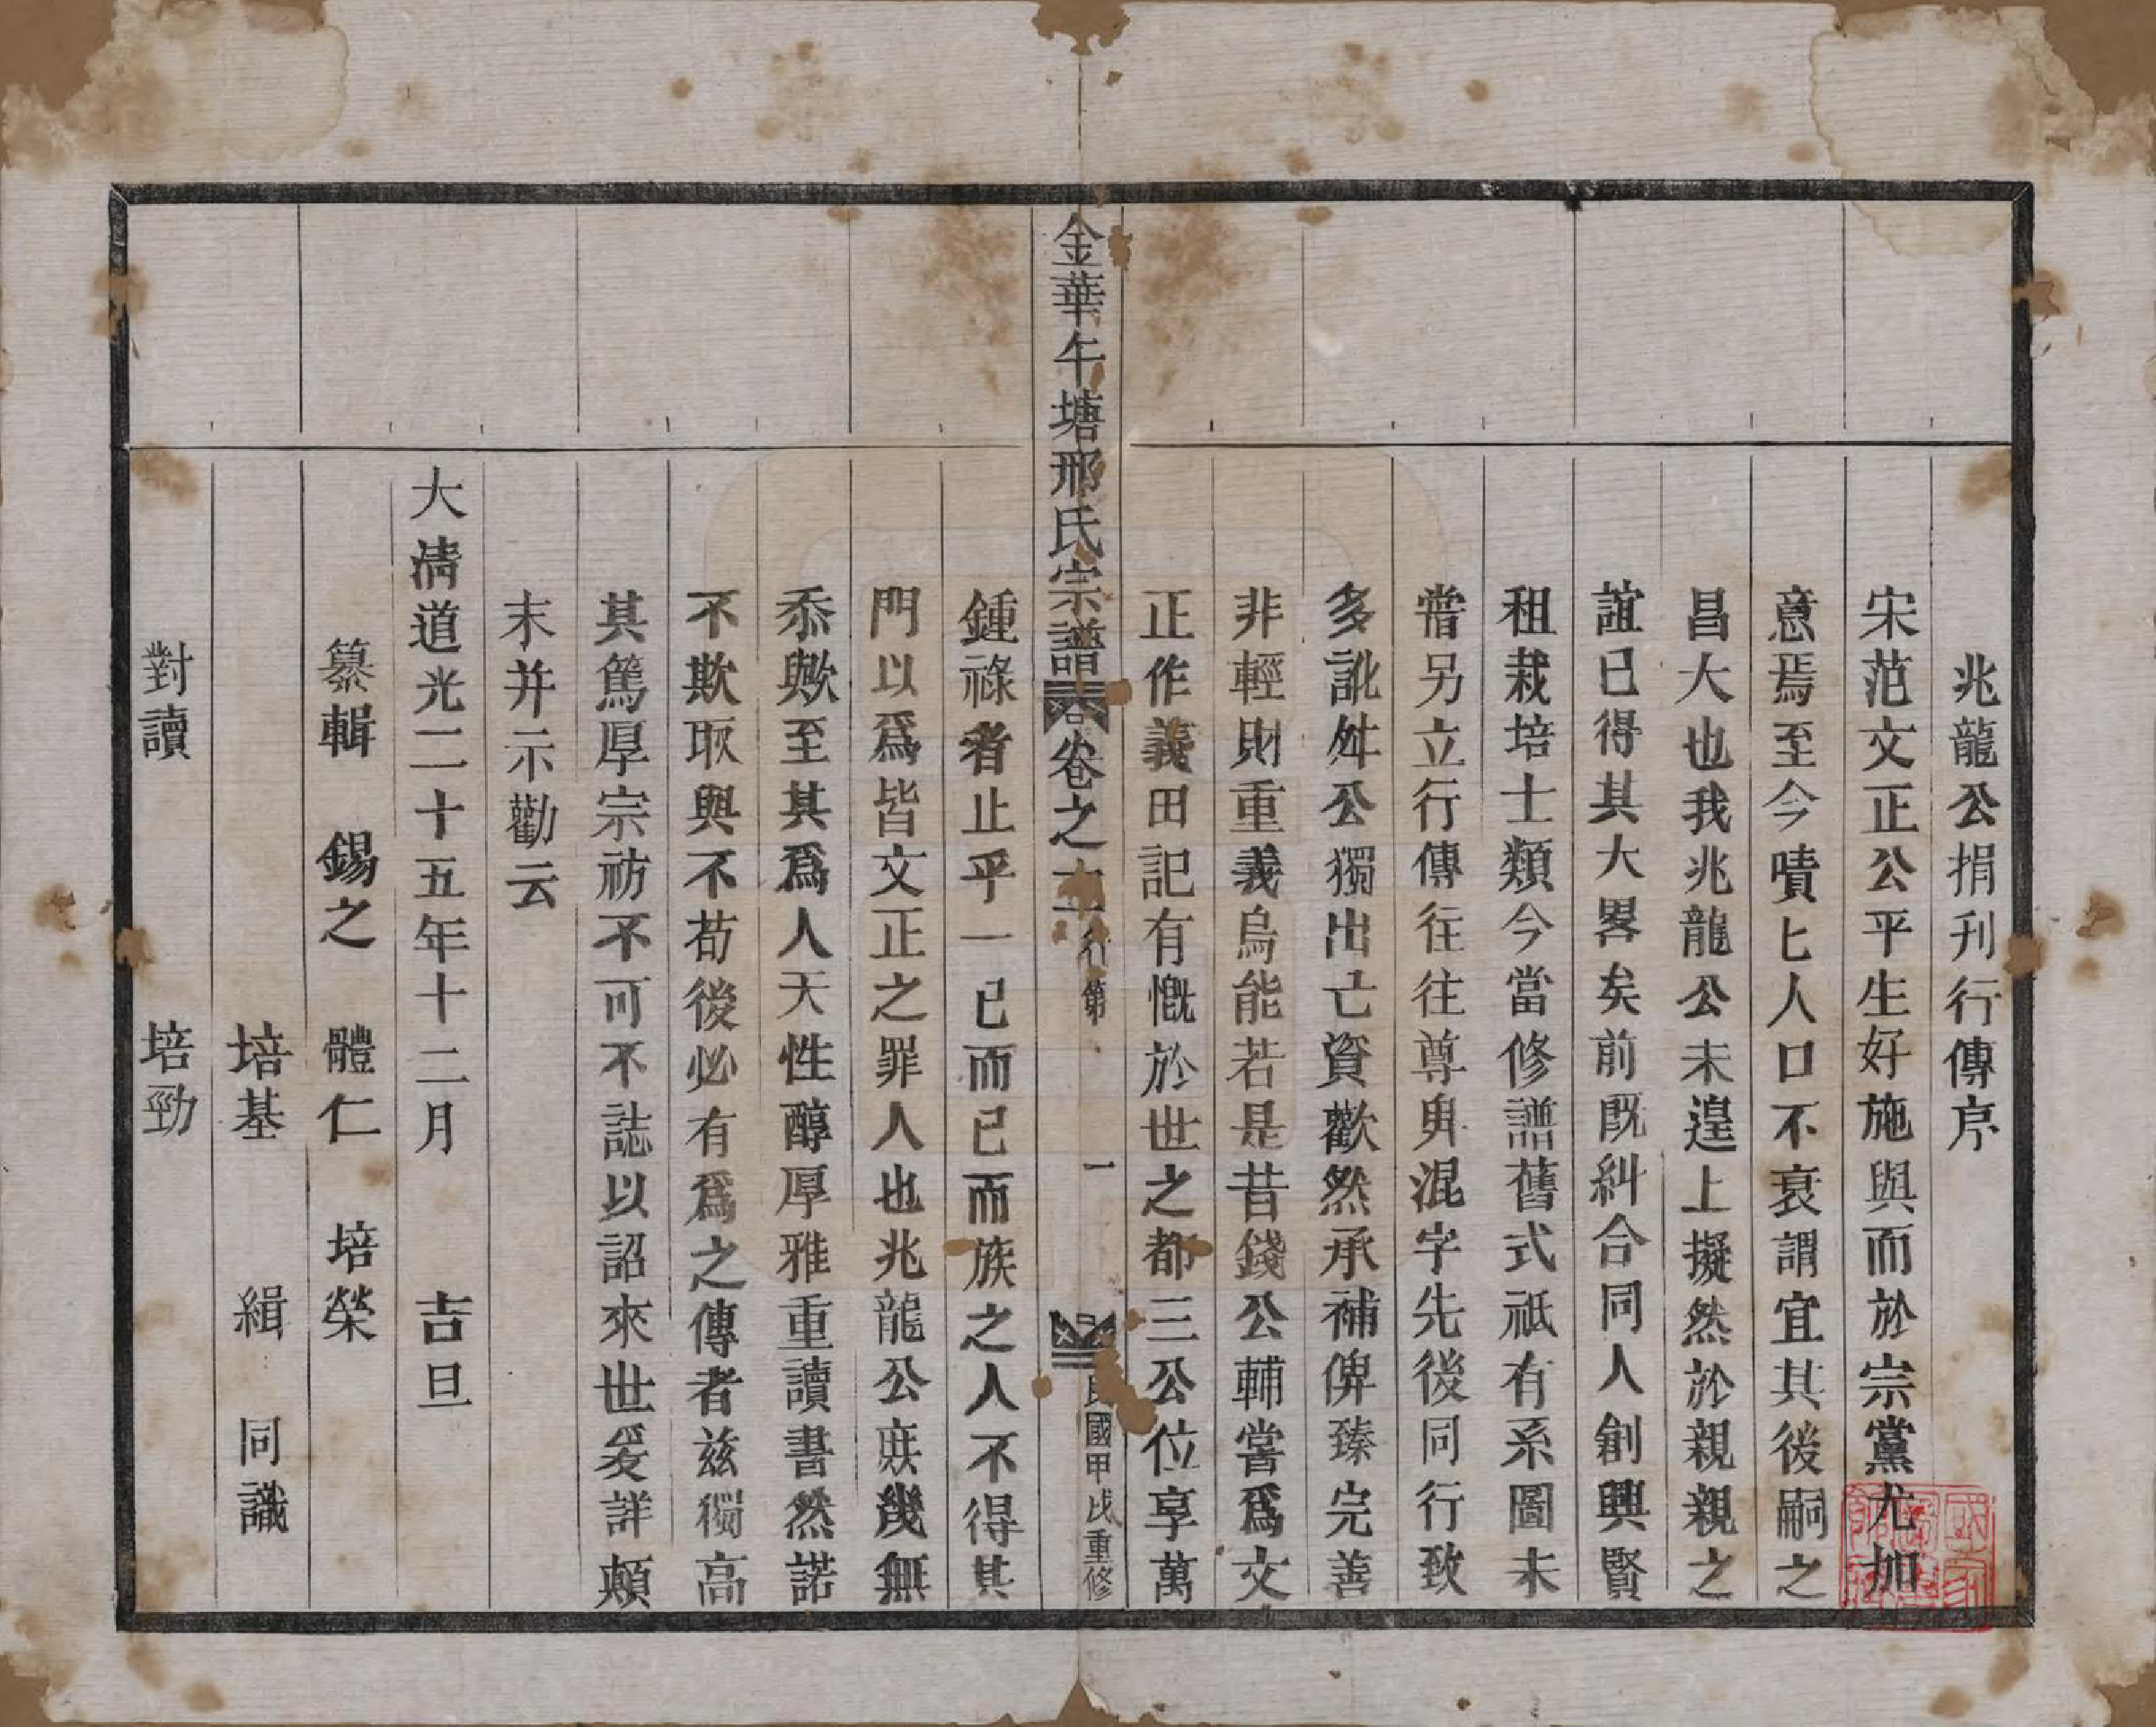 兆龍公捐刋行傳序
宋范文正公平生好施與而於宗黨尤加
意焉至今嘖匕人口不衰謂宜其後嗣之
昌大也我兆龍公未遑上擬然於親親之
誼已得其大畧矣前旣糾合同人創興賢
租栽培士類今當修譜舊式祇有系圖未
甞另立行傳往往尊卑混字先後同行致
多訛舛公獨出亡資歡然承補俾臻完善
非輕財重義烏能若是昔錢公輔嘗爲文
正作義田記有慨於世之都三公位享萬
金華午塘邢氏宗譜 卷之 行第 一 民國甲戌重修
鍾祿者止乎一已而已而族之人不得其
門以爲皆文正之罪人也兆龍公庶幾無
忝歟至其爲人天性醇厚雅重讀書然諾
不欺取與不苟後必有爲之傳者兹獨高
其篤厚宗祊不可不誌以詔來世爰詳顛
末并示勸云
大淸道光二十五年十二月 吉旦
纂輯 錫之 體仁 培榮
培基 緝 同識
對讀 培勁